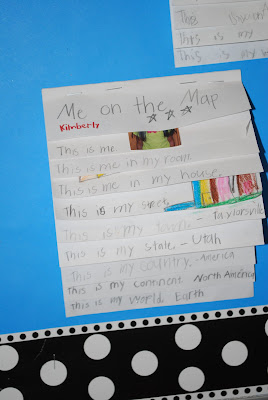 This
This is my
This is my
Me on the Map
Kimberly
This is me
This is me in my room.
This is me in my house.
This is my street
This is my town - Taylorsville
This is my state - Utah
This is my country, America
This is my continent North America
This is my world Earth